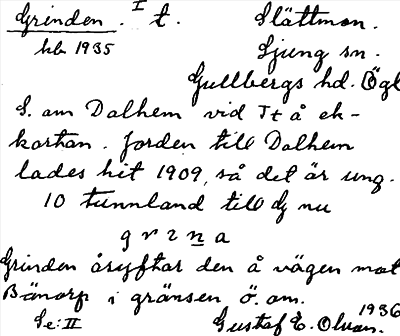 Grinden. I t. Slättmon.
hb 1935 Ljung sn.
Gullbergs hd. Ögl
S. om Dalhem vid It å ek-
kartan. Jorden till Dalhem
lades hit 1909, så det är ung.
10 tunnland till Lg nu
grina
Grinden åsyftar den å vägen mot
Bänorp i gränsen ö. om.
Se: II Gustaf E. Olson. 1936